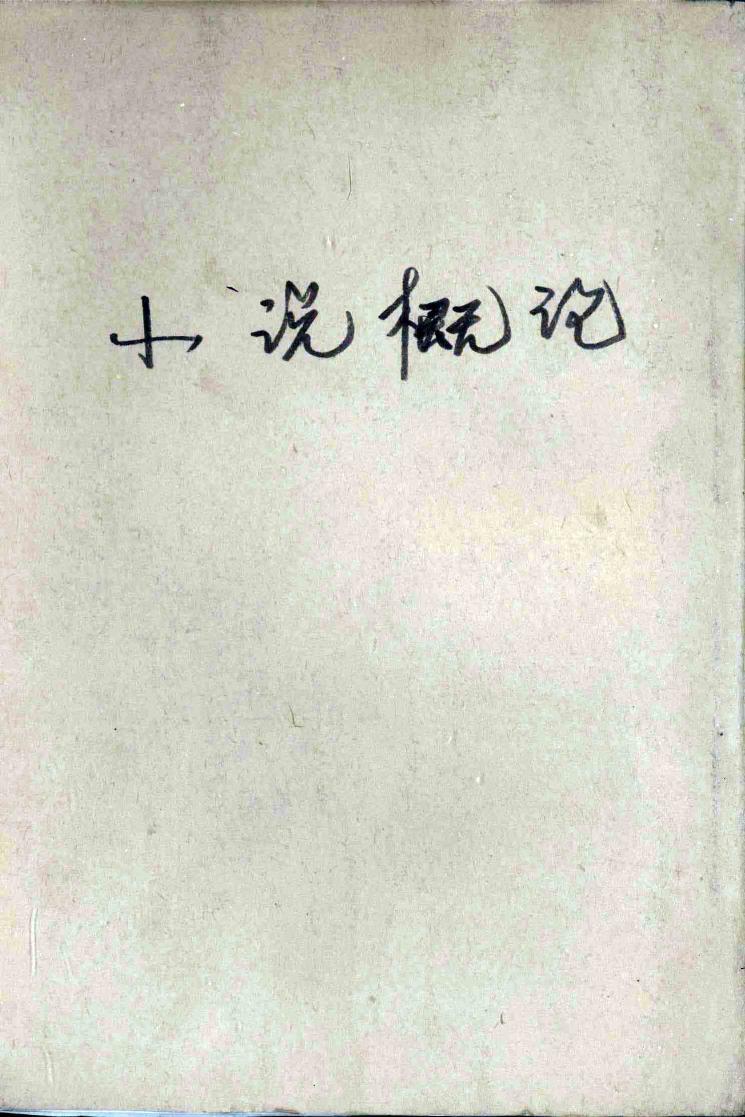 小说概论